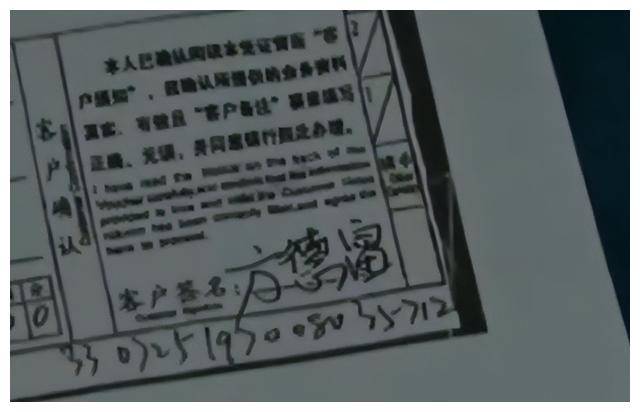 客户确认
本人已确认阅读本凭证背面“客
户须知”，且确认所提供的业务资料
真实、有效且“客户备注”事项填写
正确、无误，并同意银行据此办理。
I have read the Notice on the back of the
Voucher carefully,and confirm that the information
provided is true and valid,the Customer Notes
column has been correctly filled,and agree the
bank to proceed.
客户签名：德富
330325193008035712